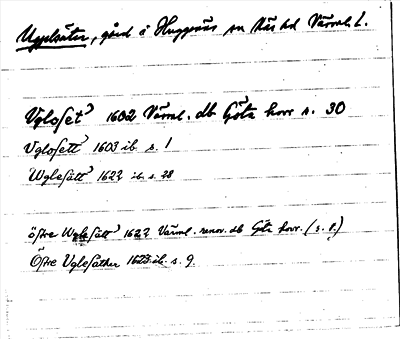 Ugglsäter, gård i Huggenäs sn Näs hd Värml. l.
Ugloset 1602 Värml. db Göta hovr s. 30
Uglosett 1603 ib s. 1
Uglesätt 1622 ib. s. 28
öfre Uglesätt 1622 Värml. renov. db Göta hovr. (s. 8.)
Öfre Uglesäther 1623 ib. s. 9.